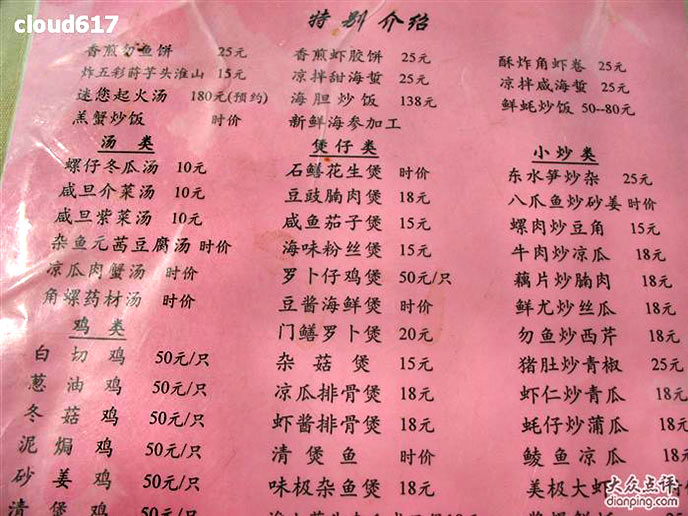 cloud617
特别介绍
香煎刀鱼饼 25元
炸五彩莳芋头淮山 15元
迷您起火汤 180元(预约)
羔蟹炒饭 时价
香煎虾胶饼 25元
凉拌甜海蜇 25元
海胆炒饭 138元
新鲜海参加工
酥炸角虾卷 25元
凉拌咸海蜇 25元
鲜蚝炒饭 50--80元
汤类
螺仔冬瓜汤 10元
咸旦介菜汤 10元
咸旦紫菜汤 10元
杂鱼元茜豆腐汤 时价
凉瓜肉蟹汤 时价
角螺药材汤 时价
鸡类
白切鸡 50元/只
葱油鸡 50元/只
冬菇鸡 50元/只
泥焗鸡 50元/只
砂姜鸡 50元/只
清煲鸡 50元/只
煲仔类
石鳝花生煲 时价
豆豉腩肉煲 18元
咸鱼茄子煲 15元
海味粉丝煲 15元
罗卜仔鸡煲 50元/只
豆酱海鲜煲 时价
门鳝罗卜煲 20元
杂菇煲 15元
凉瓜排骨煲 18元
虾酱排骨煲 18元
清煲鱼 时价
味极杂鱼煲 18元
小炒类
东水笋炒杂 25元
八瓜鱼炒砂姜 时价
螺肉炒豆角 15元
牛肉炒凉瓜 18元
藕片炒腩肉 18元
鲜尤炒丝瓜 18元
勿鱼炒西芹 18元
猪肚炒青椒 25元
虾仁炒青瓜 18元
蚝仔炒蒲瓜 18元
鲮鱼凉瓜 18元
美极大虾
大众点评
dianping.com